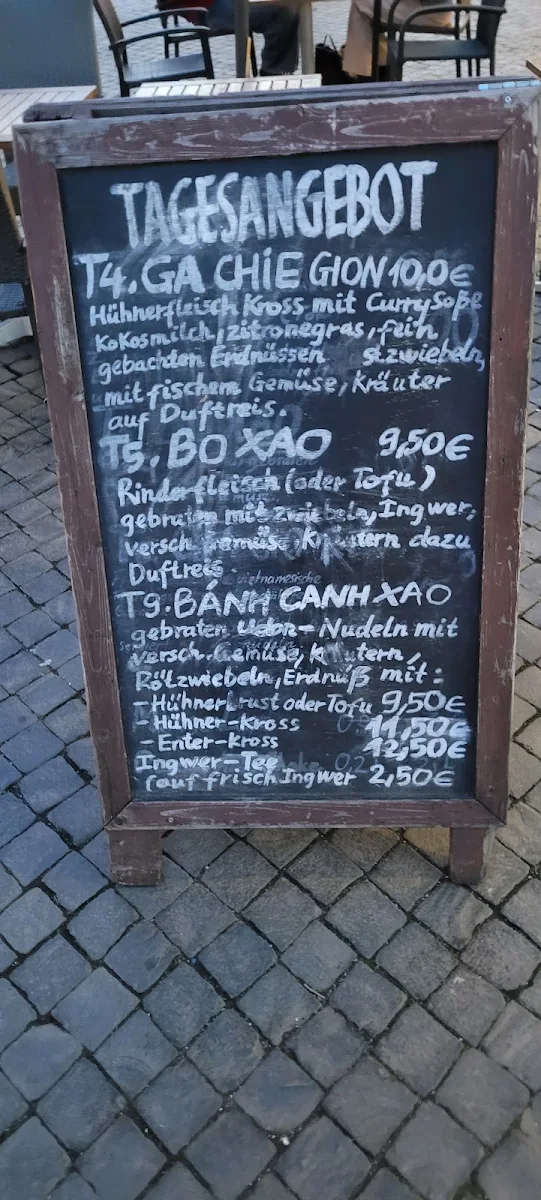 TAGESANGEBOT
T4. GA CHIE GION 10,0€
Hühnerfleisch Kross mit Currysoße
Kokosmilch, zitronegras, fein
gebachten Erdnüssen stzwiebeln,
mit fischem Gemüse, Kräuter
auf Duftreis.
T5. BO XAO 9,50€
Rinderfleisch (oder Tofu)
gebraten mit zwiebeln, Ingwer,
versch Gemüse, Kräutern dazu
Duftreis.
vietnamesische
T9. BÁNH CANH XAO
gebraten Udon-Nudeln mit
versch. Gemüse, Kräutern,
Röstzwiebeln, Erdnuß mit:
- Hühnerbrust oder Tofu 9,50€
- Hühner-Kross 11,50€
- Enter-kross 12,50€
Ingwer-Tee
(auf frisch Ingwer 2,50€